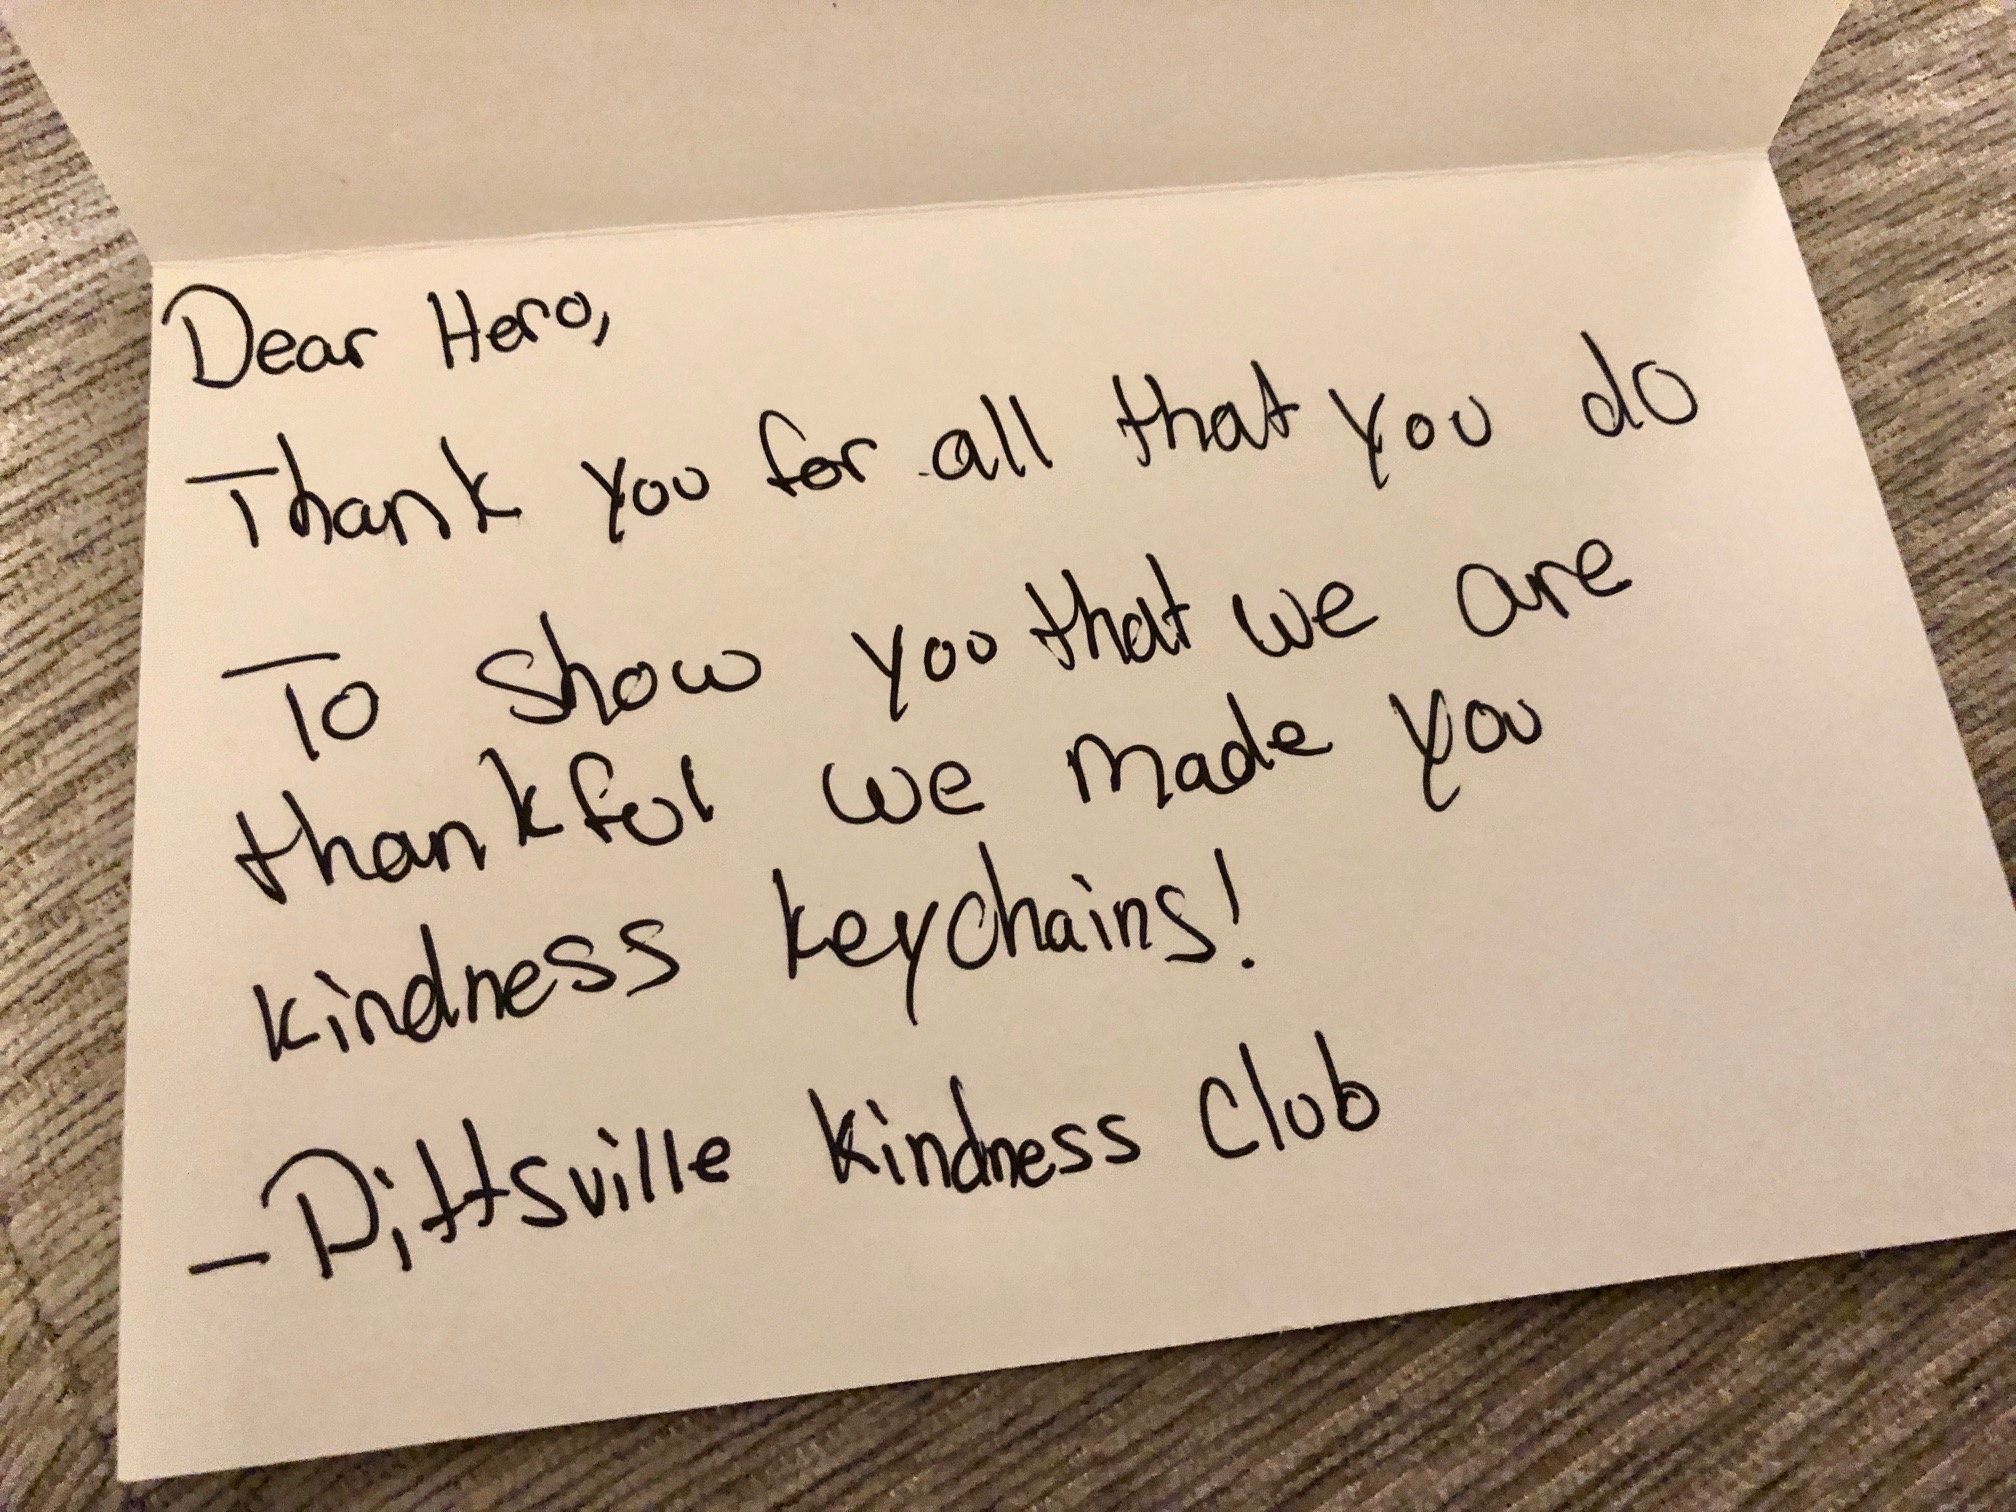 Dear Hero,
Thank you for all that you do
To show you that we are
thankful we made you
kindness keychains!
- Pittsville Kindness Club